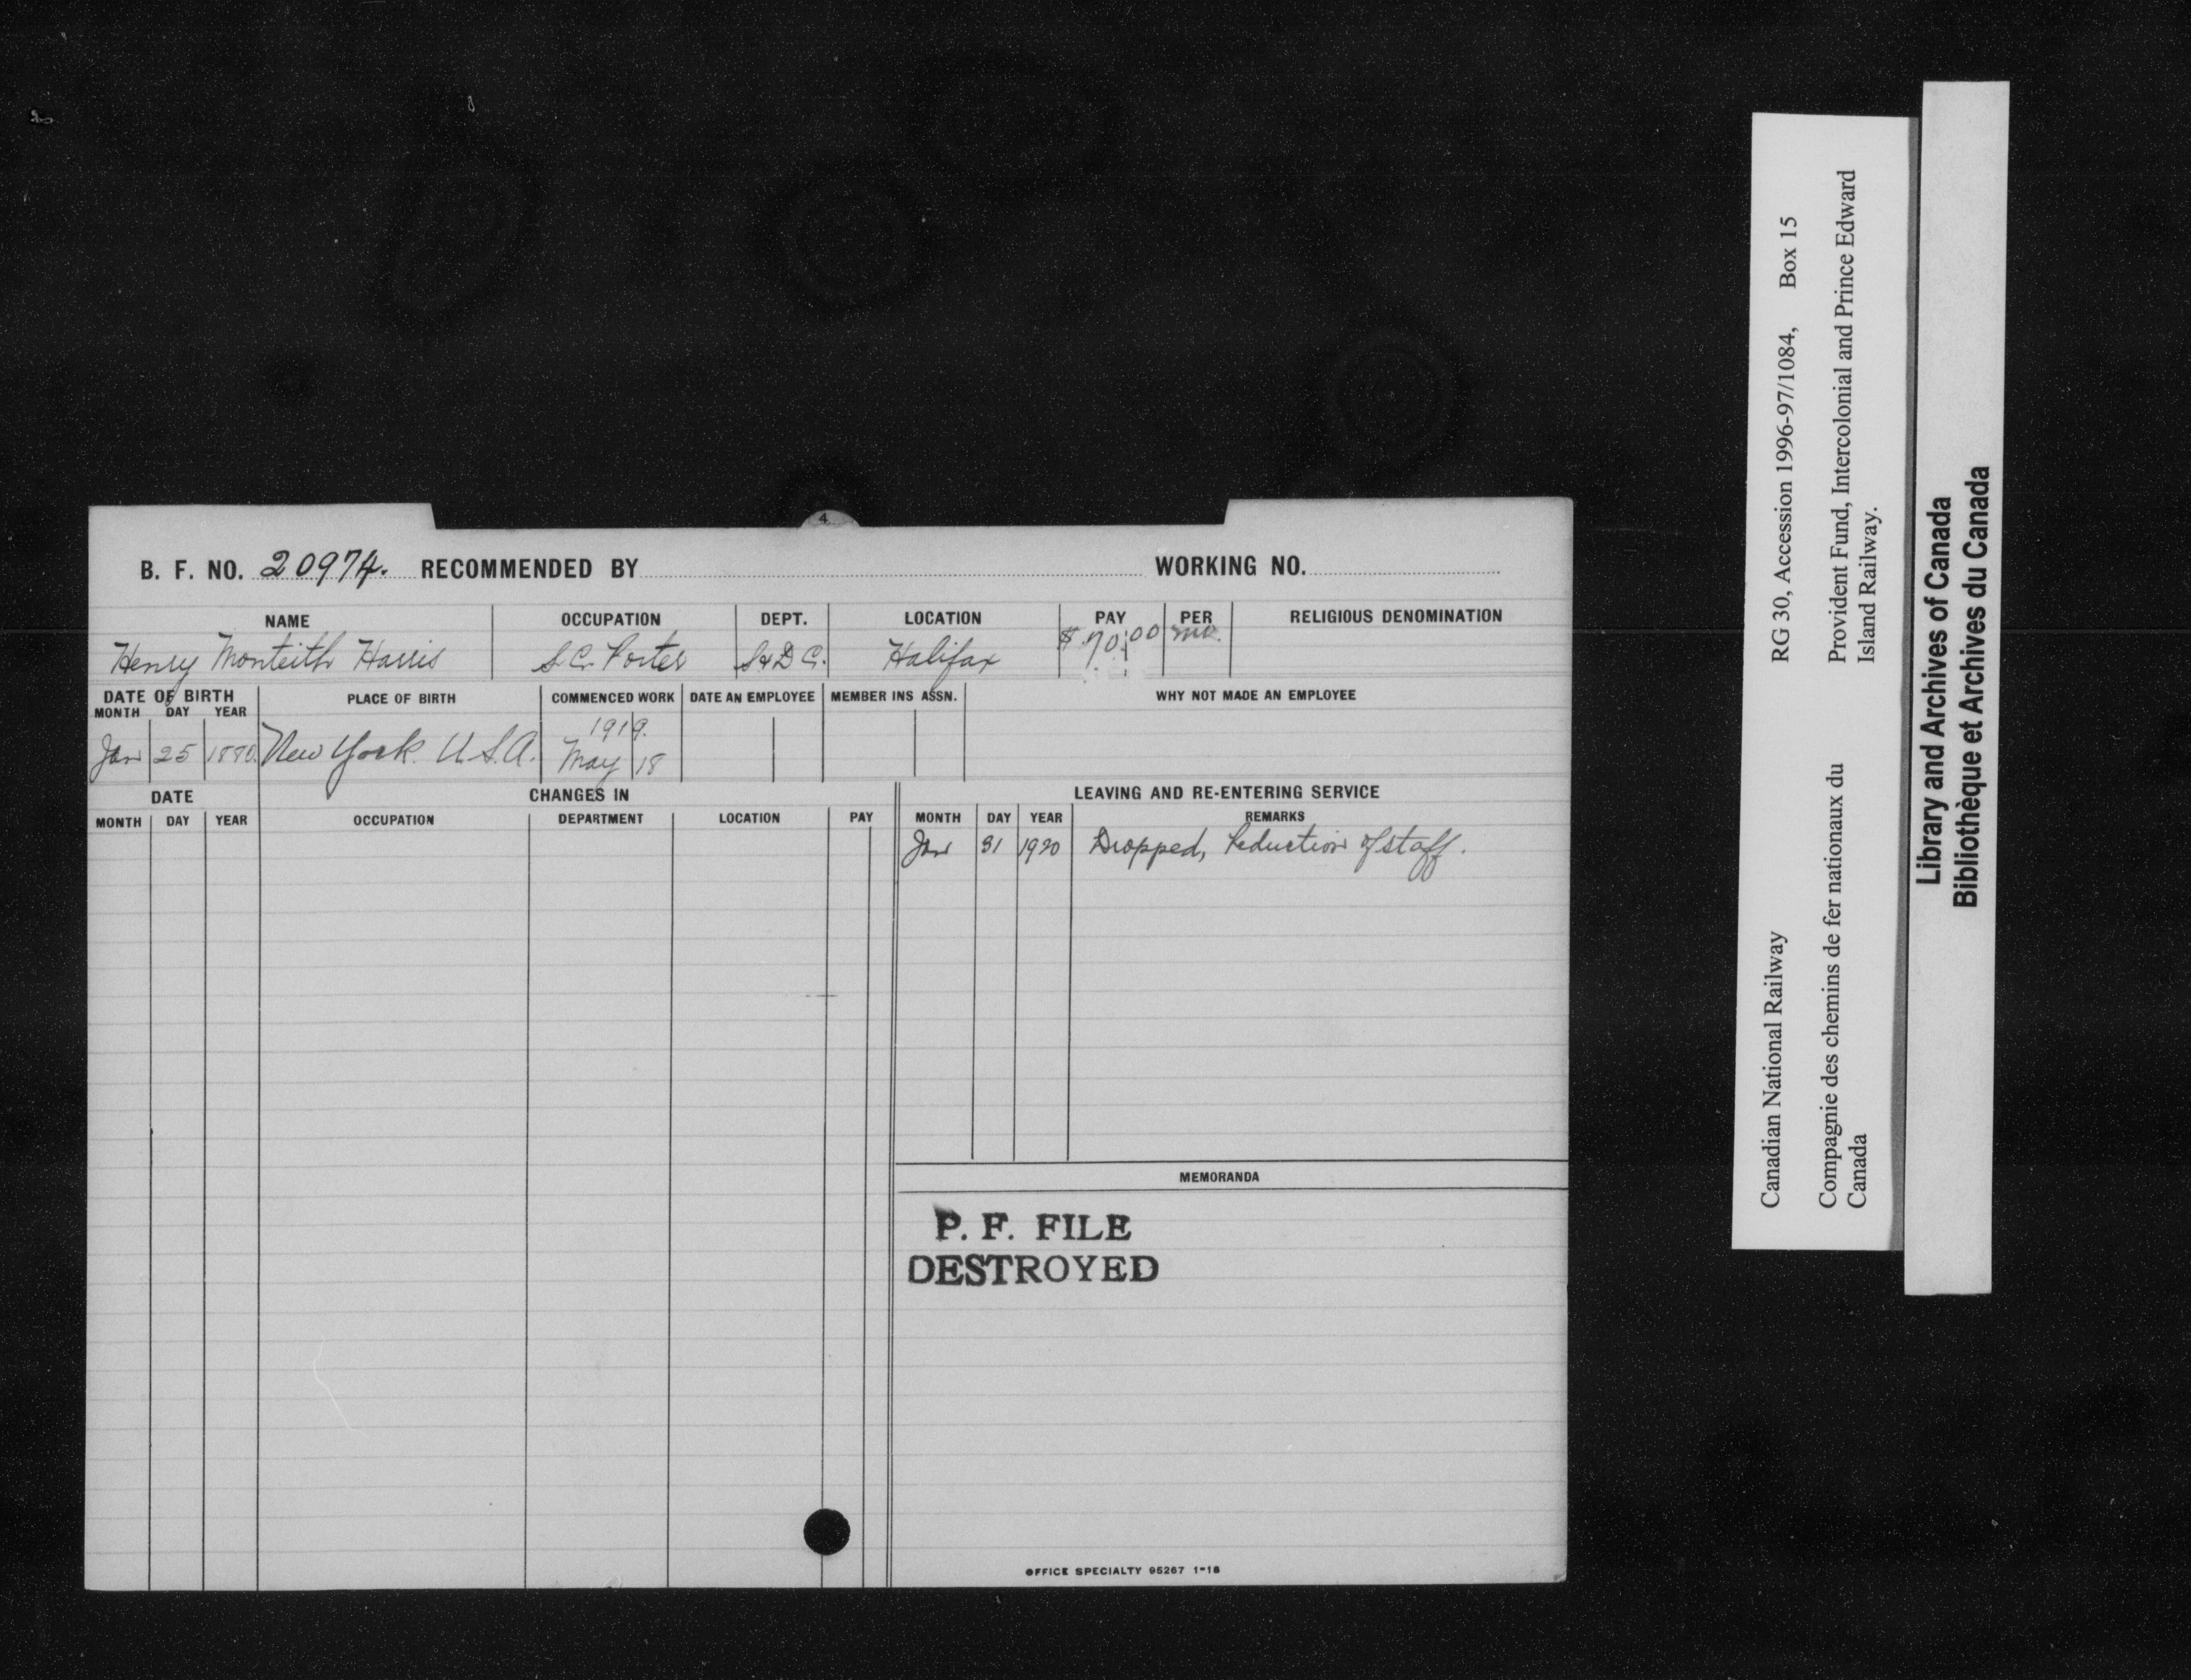 4
B. F. NO. 20974. RECOMMENDED BY WORKING NO.
NAME OCCUPATION DEPT. LOCATION PAY PER RELIGIOUS DENOMINATION
Henry Monteith Harris S.C. Porter S&D C. Halifax $70.00 mo.
DATE OF BIRTH PLACE OF BIRTH COMMENCED WORK DATE AN EMPLOYEE MEMBER INS ASSN. WHY NOT MADE AN EMPLOYEE
MONTH DAY YEAR
1919.
Jan 25 1880. New York. U.S.A. May 18
DATE CHANGES IN LEAVING AND RE-ENTERING SERVICE
MONTH DAY YEAR OCCUPATION DEPARTMENT LOCATION PAY MONTH DAY YEAR REMARKS
Jan 31 1920 Dropped, Reduction of staff.
MEMORANDA
P. F. FILE
DESTROYED
OFFICE SPECIALTY 95267 1-18
Canadian National Railway RG 30, Accession 1996-97/1084, Box 15
Compagnie des chemins de fer nationaux du Provident Fund, Intercolonial and Prince Edward
Canada Island Railway.
Library and Archives of Canada
Bibliothèque et Archives du Canada